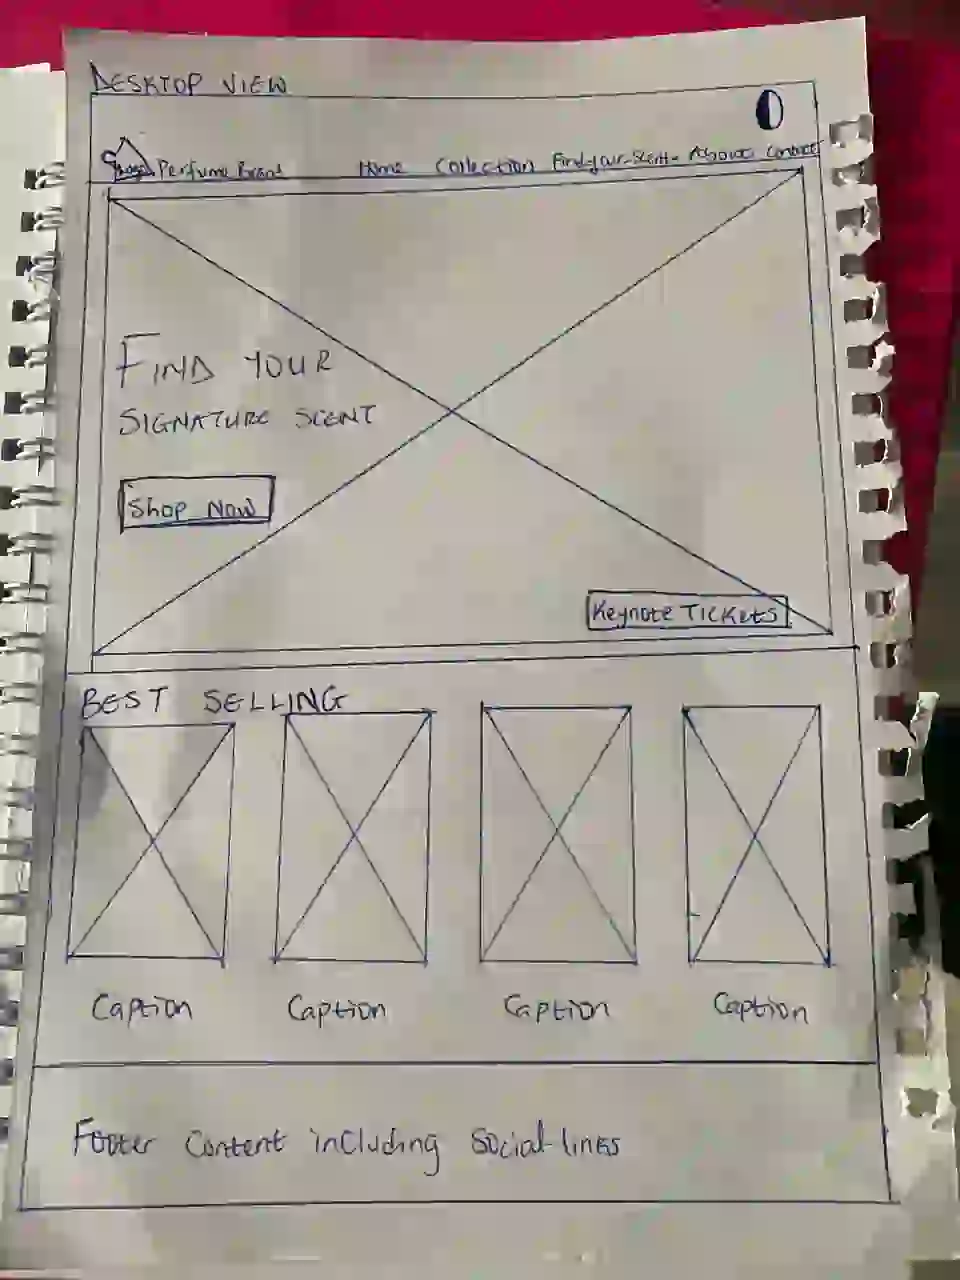 DESKTOP VIEW
Perfume Brand Home Collection Find-your-Scent About Contact
FIND YOUR
SIGNATURE SCENT
Shop Now
Keynote TICKETS
BEST SELLING
Caption Caption Caption Caption
Footer Content including Social-links